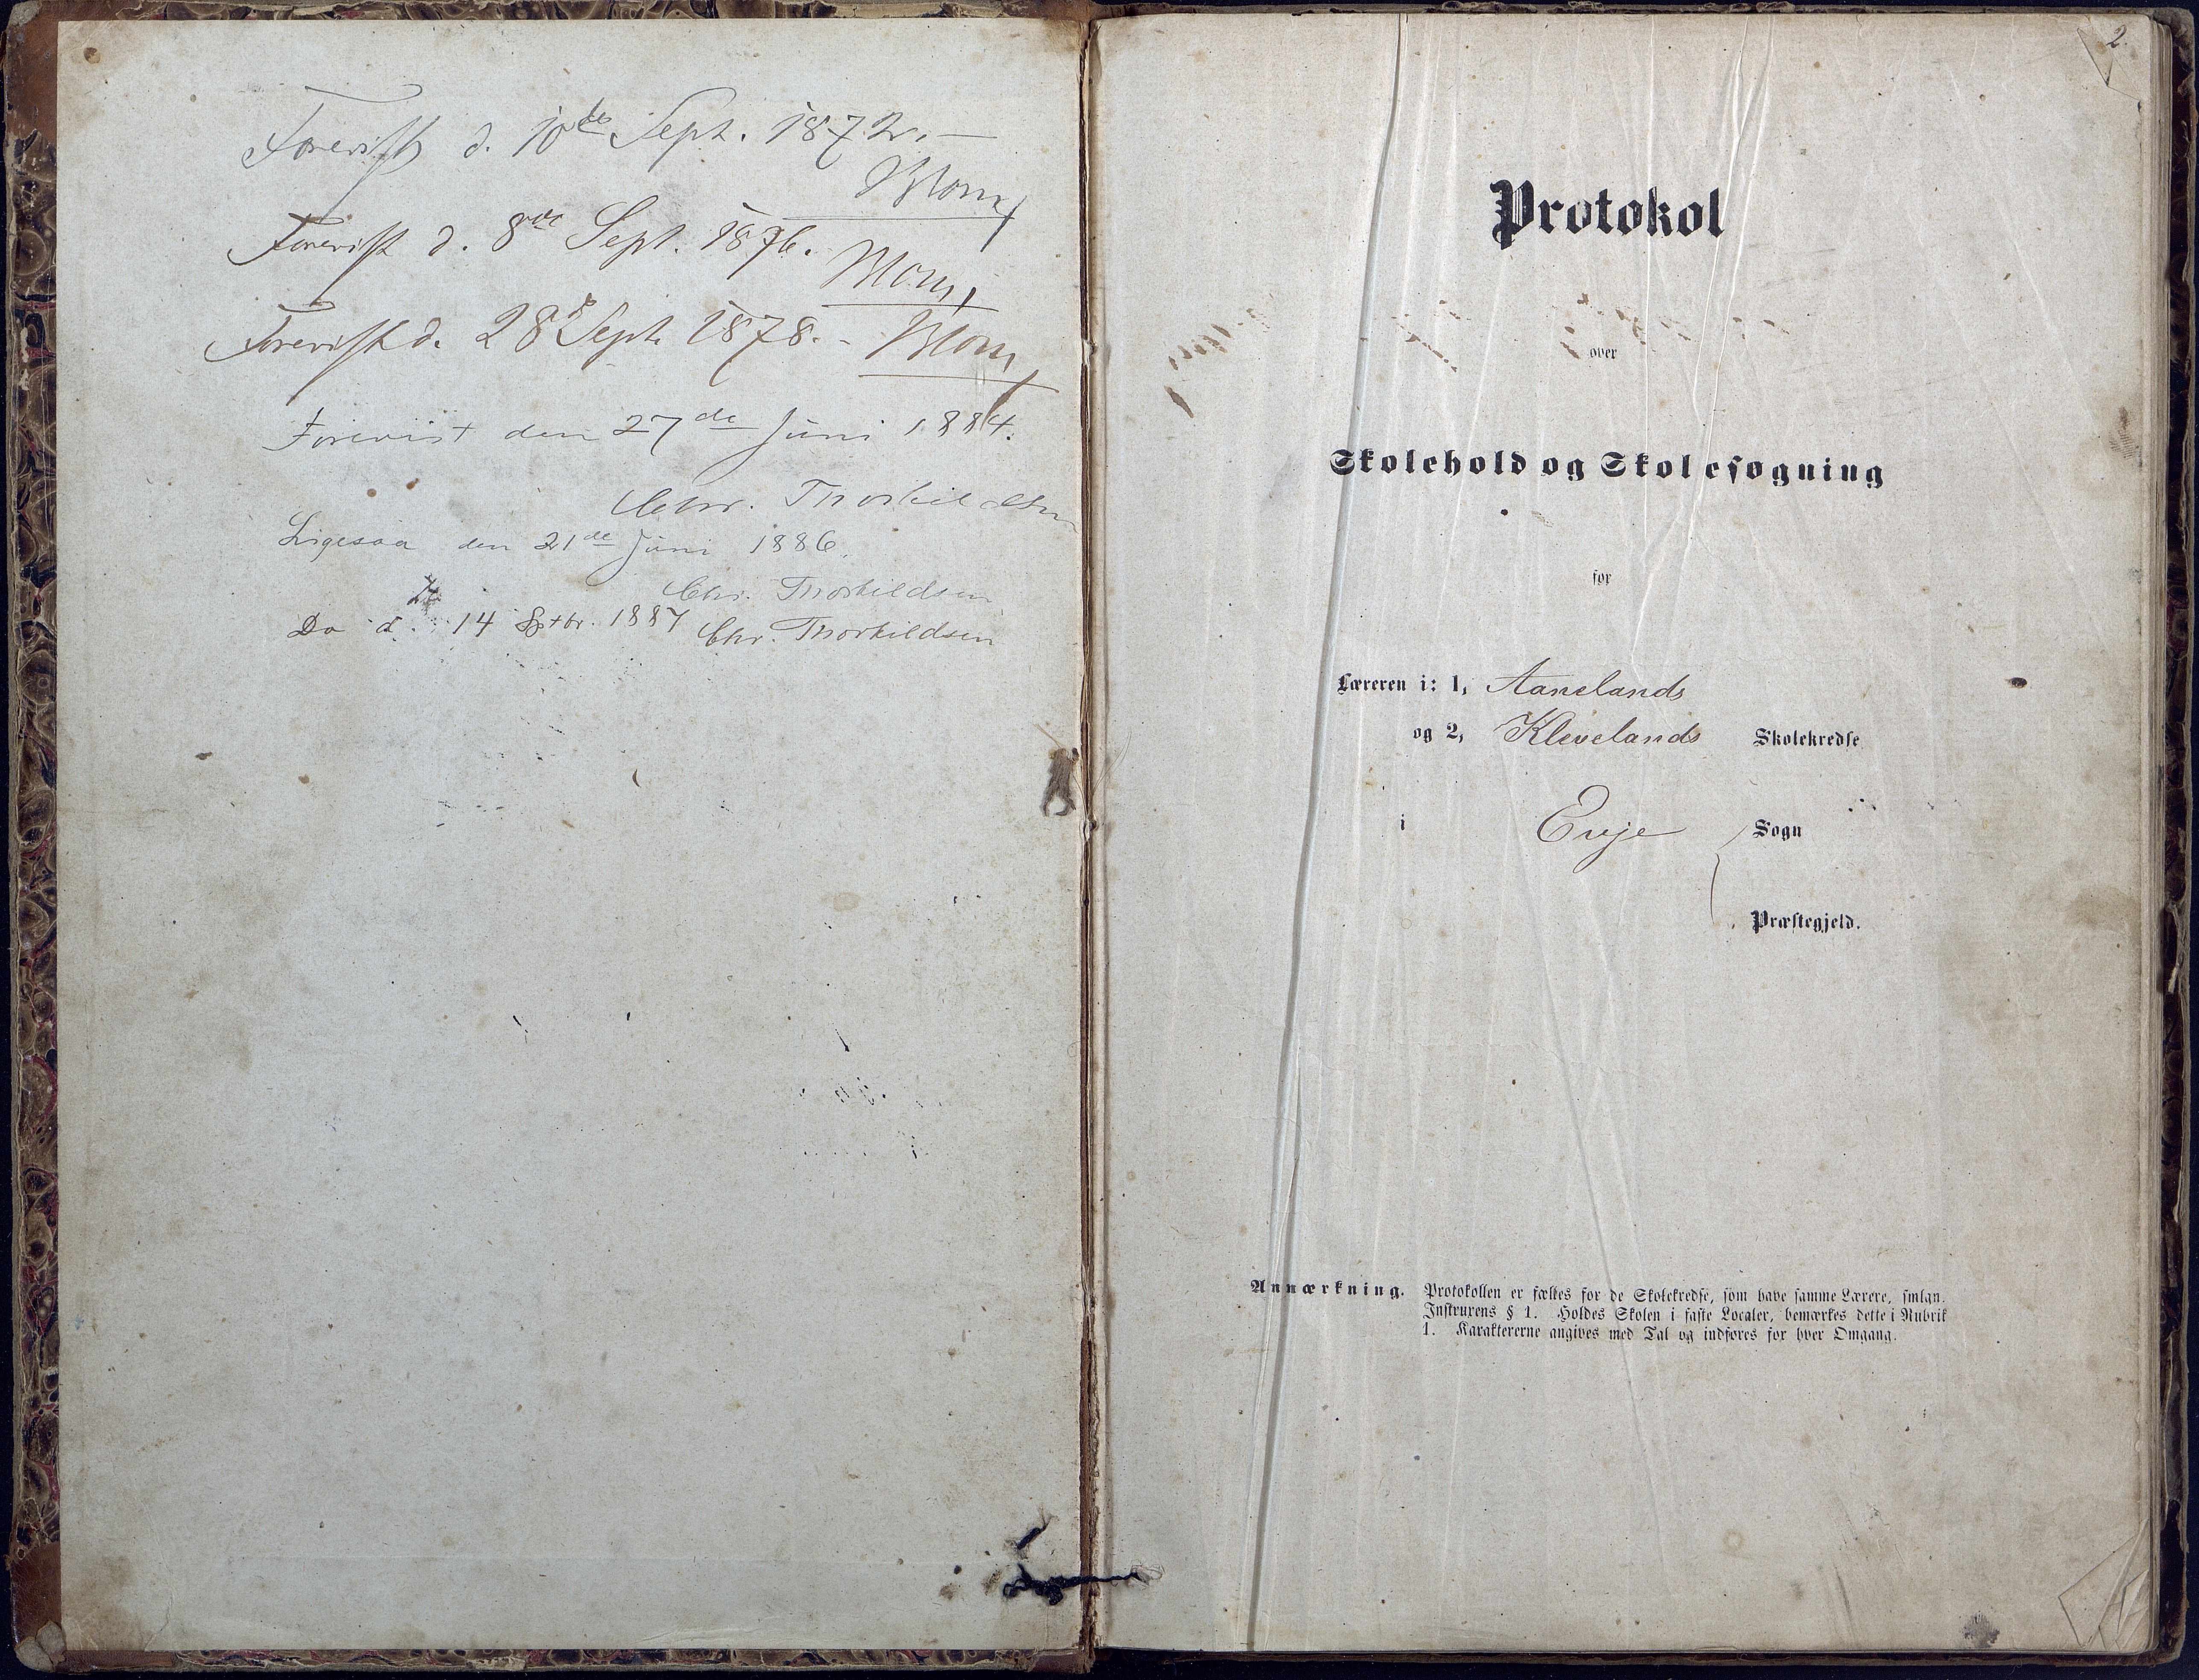 Forevist d. 10de Sept. 1872. –
Blom
Forevist d. 8de Sept. 1876.
Blom
Forevist d. 28de Sept. 1878. – Blom
Forevist den 27de Juni 1884.
Chr. Thorkildsen
Ligesaa den 21de Juni 1886.
Chr. Thorkildsen
Do d. 14 Sptbr. 1887 Chr. Thorkildsen
2.
Protokol
over
Skolehold og Skolesøgning
for
Læreren i: 1, Aanelands
og 2, Klevelands Skolekredse
i Evje Sogn
Præstegjeld.
Anmærkning. Protokollen er fælles for de Skolekredse, som have samme Lærere, smlgn.
Instruxens § 1. Holdes Skolen i faste Localer, bemærkes dette i Rubrik
1. Karaktererne angives med Tal og indføres for hver Omgang.